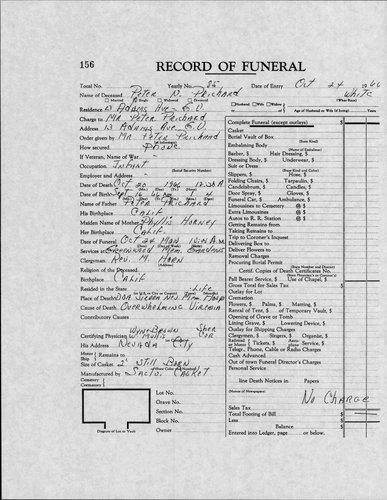 156
RECORD OF FUNERAL
Total No. Yearly No. 86 Date of Entry Oct 24 1966
Name of Deceased Peter N. Prichard White
Married Single Widowed Divorced (What Race)
Residence 13 Adams Ave - G.V. Husband Wife Widow
or of Age of Husband or Wife (if living) Years
Charge to Mr Peter Prichard
Address 13 Adams Ave G.V.
Order given by Mr Peter Prichard
How secured Phone
If Veteran, Name of War
Occupation Infant
(Social Security Number)
Employer and Address
Date of Death Oct 20 1966 12:30 A.
Date of Birth Sept 16 66
Name of Father Peter Prichard
His Birthplace Calif
Maiden Name of Mother Phyllis Horney
Her Birthplace Calif.
Date of Funeral Oct 24 Mon
Services at Greenwood Mem. Gardens
Clergyman Rev. M. Horn
Religion of the Deceased
Birthplace Calif
Resided in the State Life
Place of Death Sierra Nev. Mem Hosp
Cause of Death Overwhelming Viremia
Contributory Causes
Certifying Physician W. Mollis
His Address Nevada City
Motor Remains to
Ship
Size of Casket 2' Still Born
Manufactured by Sacto. Casket
Cemetery
Crematory
Lot No.
Grave No.
Section No.
Block No.
Owner
Diagram of Lot or Vault
Complete Funeral (except outlays) $
Casket
Burial Vault or Box
(State Kind)
Embalming Body
(Name of Embalmer)
Barber, $ Hair Dressing, $
Dressing Body, $ Underwear, $
Suit or Dress
(State Kind and Colour)
Slippers, $ Hose, $
Folding Chairs, $ Tarpaulin, $
Candelabrum, $ Candles, $
Door Spray, $ Gloves, $
Funeral Car, $ Ambulance, $
Limousines to Cemetery @ $
Extra Limousines @ $
Autos to R. R. Station @ $
Getting Remains from
Taking Remains to
Trip to Coroner's Inquest
Delivering Box to
Deliver Flowers to
Removal Charges
Procuring Burial Permit
(State Number and District)
Certif. Copies of Death Certificates No.
(Non-Physician's or Coroner's)
Pall Bearer Service, $ Use of Chapel, $
Gross Total for Sales Tax $
Outlay for Lot
Cremation
Flowers, $ Palms, $ Matting, $
Rental of Tent, $ of Temporary Vault, $
Opening of Grave or Tomb
Lining Grave, $ Lowering Device, $
Outlay for Shipping Charges
Clergyman, $ Singers, $ Organist, $
Railroad Tickets, $ Service, $
Telegr., Phone, Cable or Radio Charges
Cash Advanced
Out of town Funeral Director's Charges
Personal Service
line Death Notices in Papers
(Names of Newspapers)
No Charge
Sales Tax
Total Footing of Bill $
Less $
Balance $
Entered into Ledger, page or below.